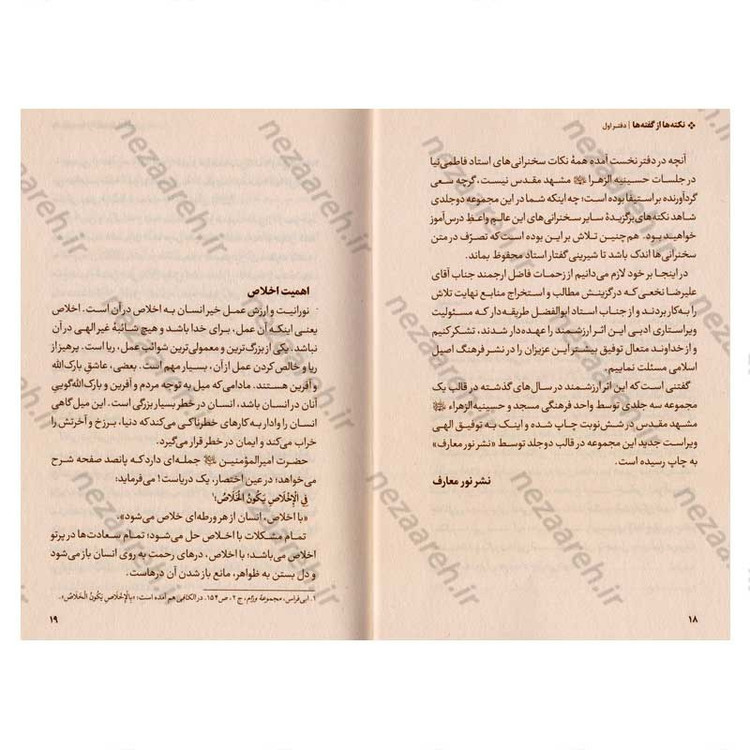 ❖ نکته‌ها از گفته‌ها | دفتر اول
آنچه در دفتر نخست آمده همهٔ نکات سخنرانی‌های استاد فاطمی‌نیا
در جلسات حسینیه الزهرا مشهد مقدس نیست، گرچه سعی
گردآورنده بر استیفا بوده است؛ چه اینکه شما در این مجموعه دوجلدی
شاهد نکته‌های برگزیدهٔ سایر سخنرانی‌های این عالم واعظِ درس‌آموز
خواهید بود. هم‌چنین تلاش بر این بوده است که تصرّف در متن
سخنرانی‌ها اندک باشد تا شیرینی گفتار استاد محفوظ بماند.
در اینجا بر خود لازم می‌دانیم از زحمات فاضل ارجمند جناب آقای
علیرضا نخعی که در گزینش مطالب و استخراج منابع نهایت تلاش
را به کار بردند و از جناب استاد ابوالفضل طریقه‌دار که مسئولیت
ویراستاری ادبی این اثر ارزشمند را عهده‌دار شدند، تشکر کنیم
و از خداوند متعال توفیق بیشتر این عزیزان را در نشر فرهنگ اصیل
اسلامی مسئلت نماییم.
گفتنی است که این اثر ارزشمند در سال‌های گذشته در قالب یک
مجموعه سه جلدی توسط واحد فرهنگی مسجد و حسینیه الزهراء
مشهد مقدس در شش نوبت چاپ شده و اینک به توفیق الهی
ویراست جدید این مجموعه در قالب دو جلد توسط «نشر نور معارف»
به چاپ رسیده است.
نشر نور معارف
۱۸
اهمیت اخلاص
نورانیت و ارزش عمل خیر انسان به اخلاص در آن است. اخلاص
یعنی اینکه آن عمل، برای خدا باشد و هیچ شائبهٔ غیر الهی در آن
نباشد. یکی از بزرگ‌ترین و معمولی‌ترین شوائب عمل، ریا است. پرهیز از
ریا و خالص کردن عمل از آن، بسیار مهم است. بعضی، عاشق بارک‌الله
و آفرین هستند. مادامی که میل به توجه مردم و آفرین و بارک‌الله‌گویی
آنان در انسان باشد، انسان در خطر بسیار بزرگی است. این میل گاهی
انسان را وادار به کارهای خطرناکی می‌کند که دنیا، برزخ و آخرتش را
خراب می‌کند و ایمان در خطر قرار می‌گیرد.
حضرت امیرالمؤمنین جمله‌ای دارد که پانصد صفحه شرح
می‌خواهد؛ در عین اختصار، یک دریاست! می‌فرماید:
فِي الْإِخْلَاصِ يَكُونُ الْخَلَاصُ؛۱
«با اخلاص، انسان از هر ورطه‌ای خلاص می‌شود».
تمام مشکلات با اخلاص حل می‌شود؛ تمام سعادت‌ها در پرتو
اخلاص می‌باشد؛ با اخلاص، درهای رحمت به روی انسان باز می‌شود
و دل بستن به ظواهر، مانع باز شدن آن درهاست.
۱. ابی‌فراس، مجموعهٔ ورّام، ج ۲، ص۱۵۴. در الکافی هم آمده است: «بِالْإِخْلَاصِ يَكُونُ الْخَلَاصُ».
۱۹
nezaareh.ir
nezaareh.ir
nezaareh.ir
nezaareh.ir
nezaareh.ir
nezaareh.ir
nezaareh.ir
nezaareh.ir